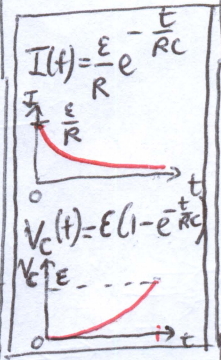 I(t)=ε/R e^-t/RC
I
ε/R
0
t
V_C(t)=ε(1-e^-t/RC)
V_C
ε
0
t